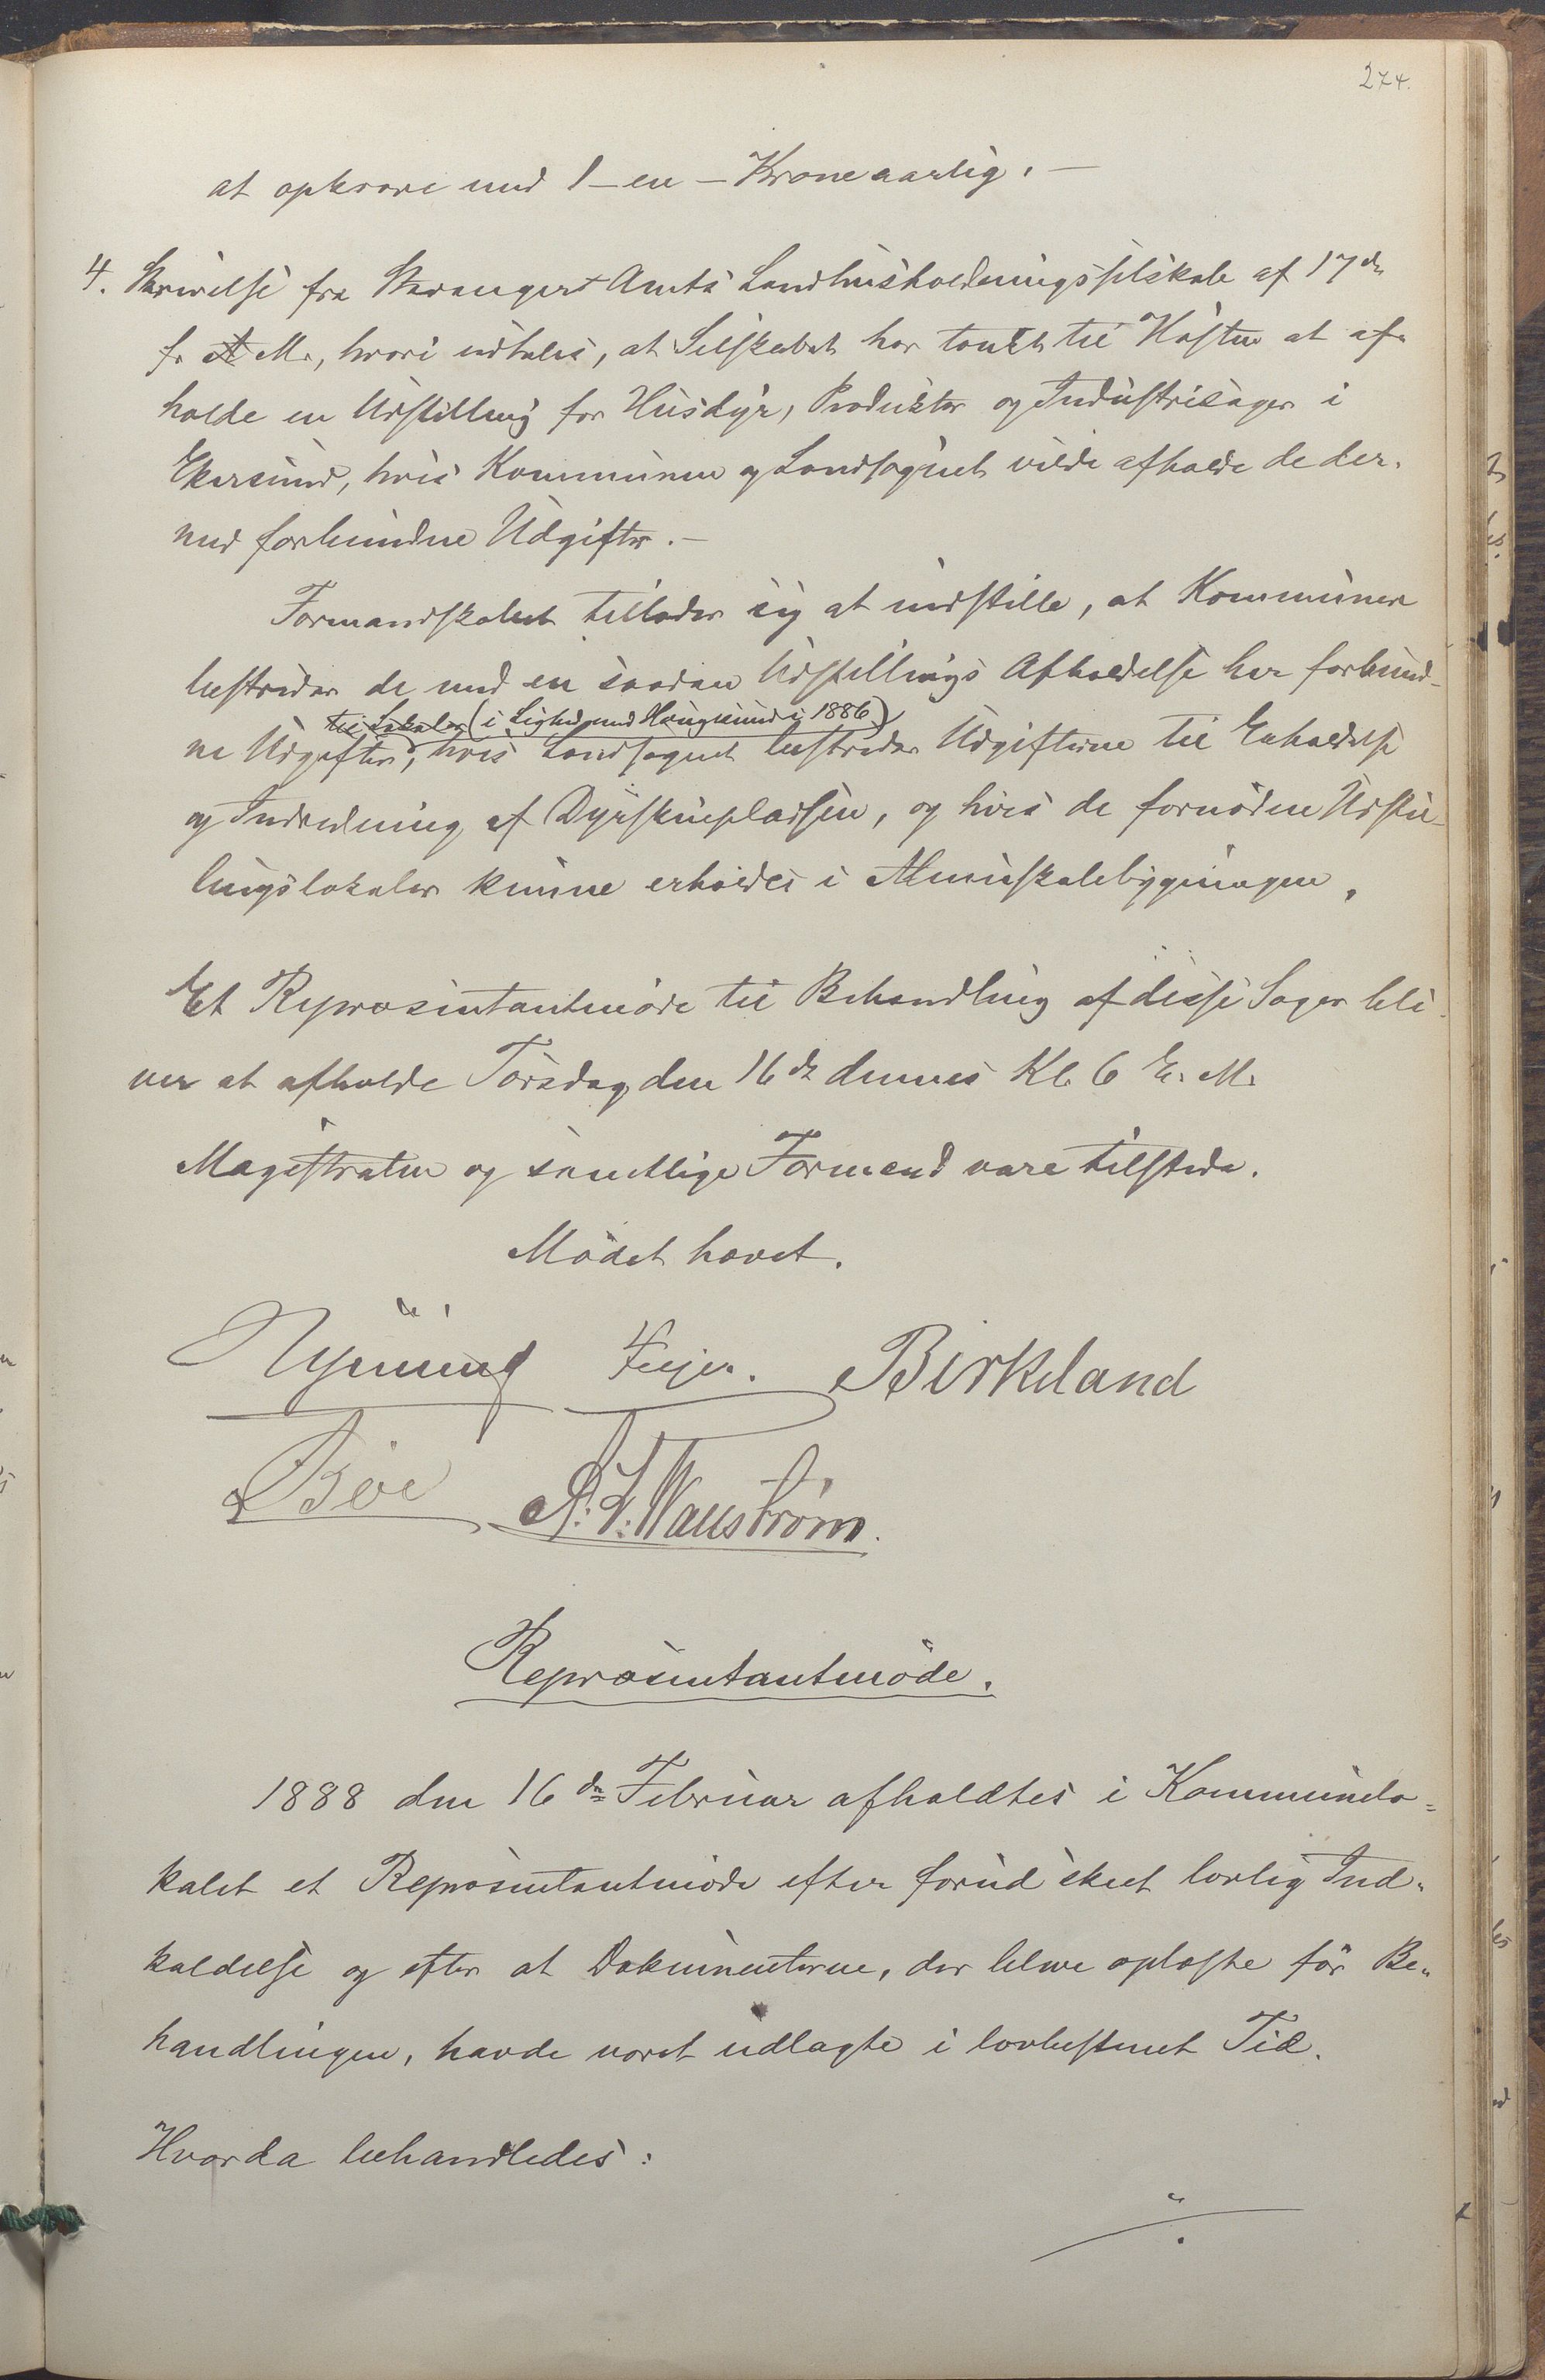 274.
at opkræve med 1 – en – Krone aarlig. –
4. Skrivelse fra Stavanger Amts Landhusholdningsselskab af 17de
f. M., hvori udtales, at Selskabet har tænkt til Høsten at af-
holde en Udstilling for Husdyr, Produkter og Industrisager i
Ekersund, hvis Kommunen og Landsognet vilde afholde de der-
med forbundne Udgifter. –
Formandskabet tillader sig at indstille, at Kommunen
bestrider de med en saadan Udstillings Afholdelse her forbund-
til Lokaler (i Lighed med Haugesund i 1886)
ne Udgifter, hvis Landsognet bestrider Udgifterne til Erholdelse
og Indredning af Dyrskuepladsen, og hvis de fornødne Udstil-
lingslokaler kunne erholdes i Almueskolebygningen.
Et Repræsentantmøde til Behandling af disse Sager bli-
ver at afholde Torsdag den 16de dennes Kl. 6 E. M.
Magistraten og samtlige Formænd vare tilstede.
Mødet hævet.
Feyer. Birkeland
Bøe
Repræsentantmøde.
1888 den 16de Februar afholdtes i Kommunelo-
kalet et Repræsentantmøde efter forud skeet lovlig Ind-
kaldelse og efter at Dokumenterne, der bleve oplæste før Be-
handlingen, havde været udlagte i lovbestemt Tid.
Hvorda behandledes: